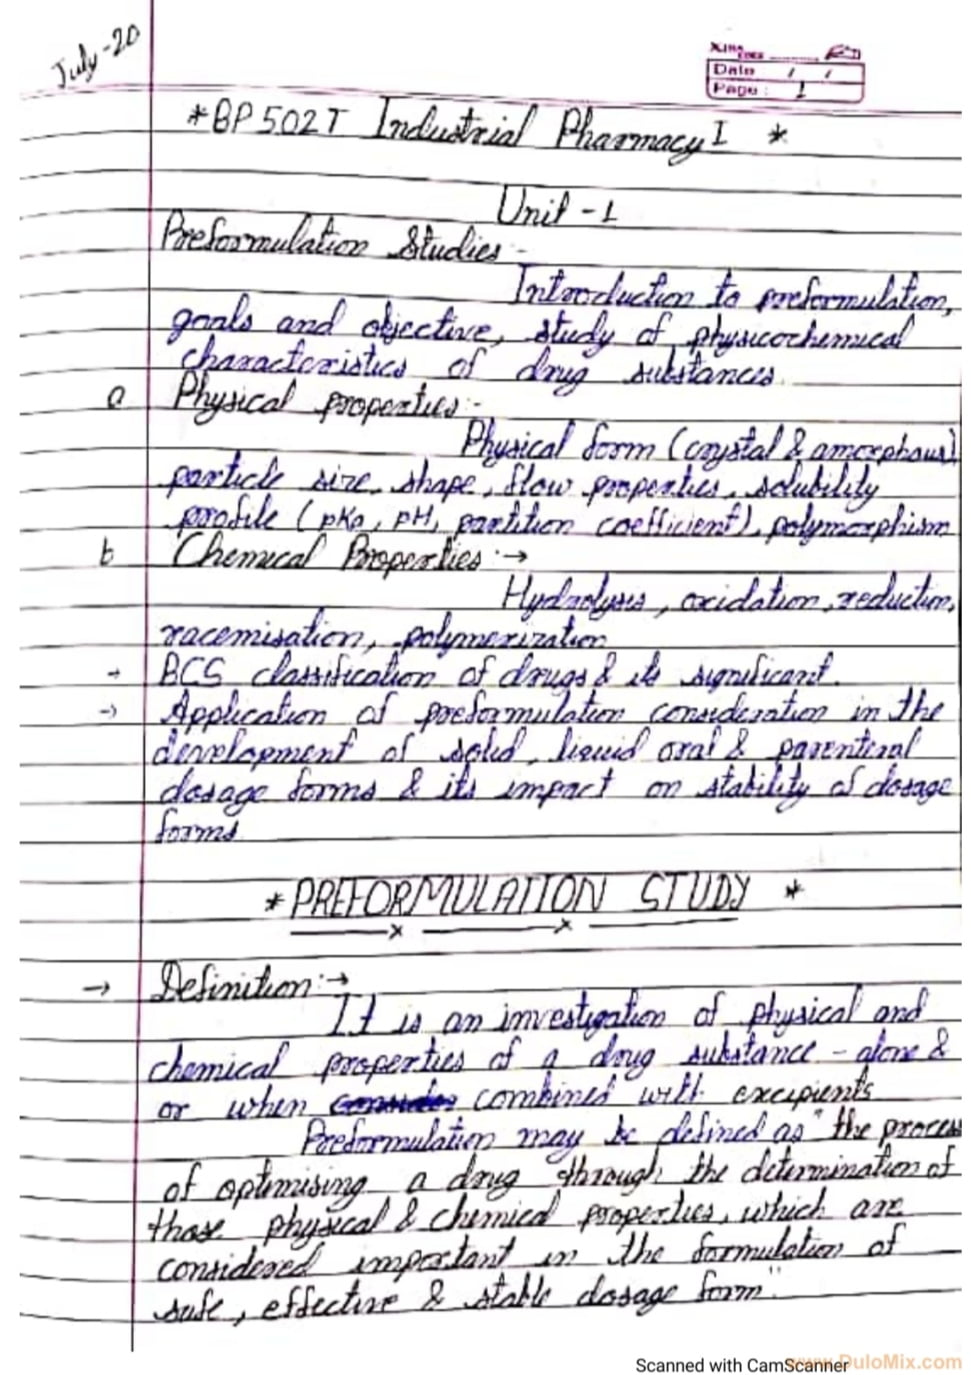 July-20
Date / /
Page: 1
*BP 502T Industrial Pharmacy I *
Unit - 1
Preformulation Studies -
Introduction to preformulation,
goals and objective, study of physicochemical
characteristics of drug substances.
a Physical properties:-
Physical form (crystal & amorphous)
particle size, shape, flow properties, solubility
profile (pKa, pH, partition coefficient), polymorphism
b Chemical Properties:→
Hydrolysis, oxidation, reduction,
racemisation, polymerization
→ BCS classification of drugs & its significant.
→ Application of preformulation consideration in the
development of solid, liquid oral & parenteral
dosage forms & its impact on stability of dosage
forms.
* PREFORMULATION STUDY *
→ Definition:→
It is an investigation of physical and
chemical properties of a drug substance - alone &
or when combined with excipients
Preformulation may be defined as "the process
of optimising a drug through the determination of
those physical & chemical properties, which are
considered important in the formulation of
safe, effective & stable dosage form"
Scanned with CamScanner
www.DuloMix.com